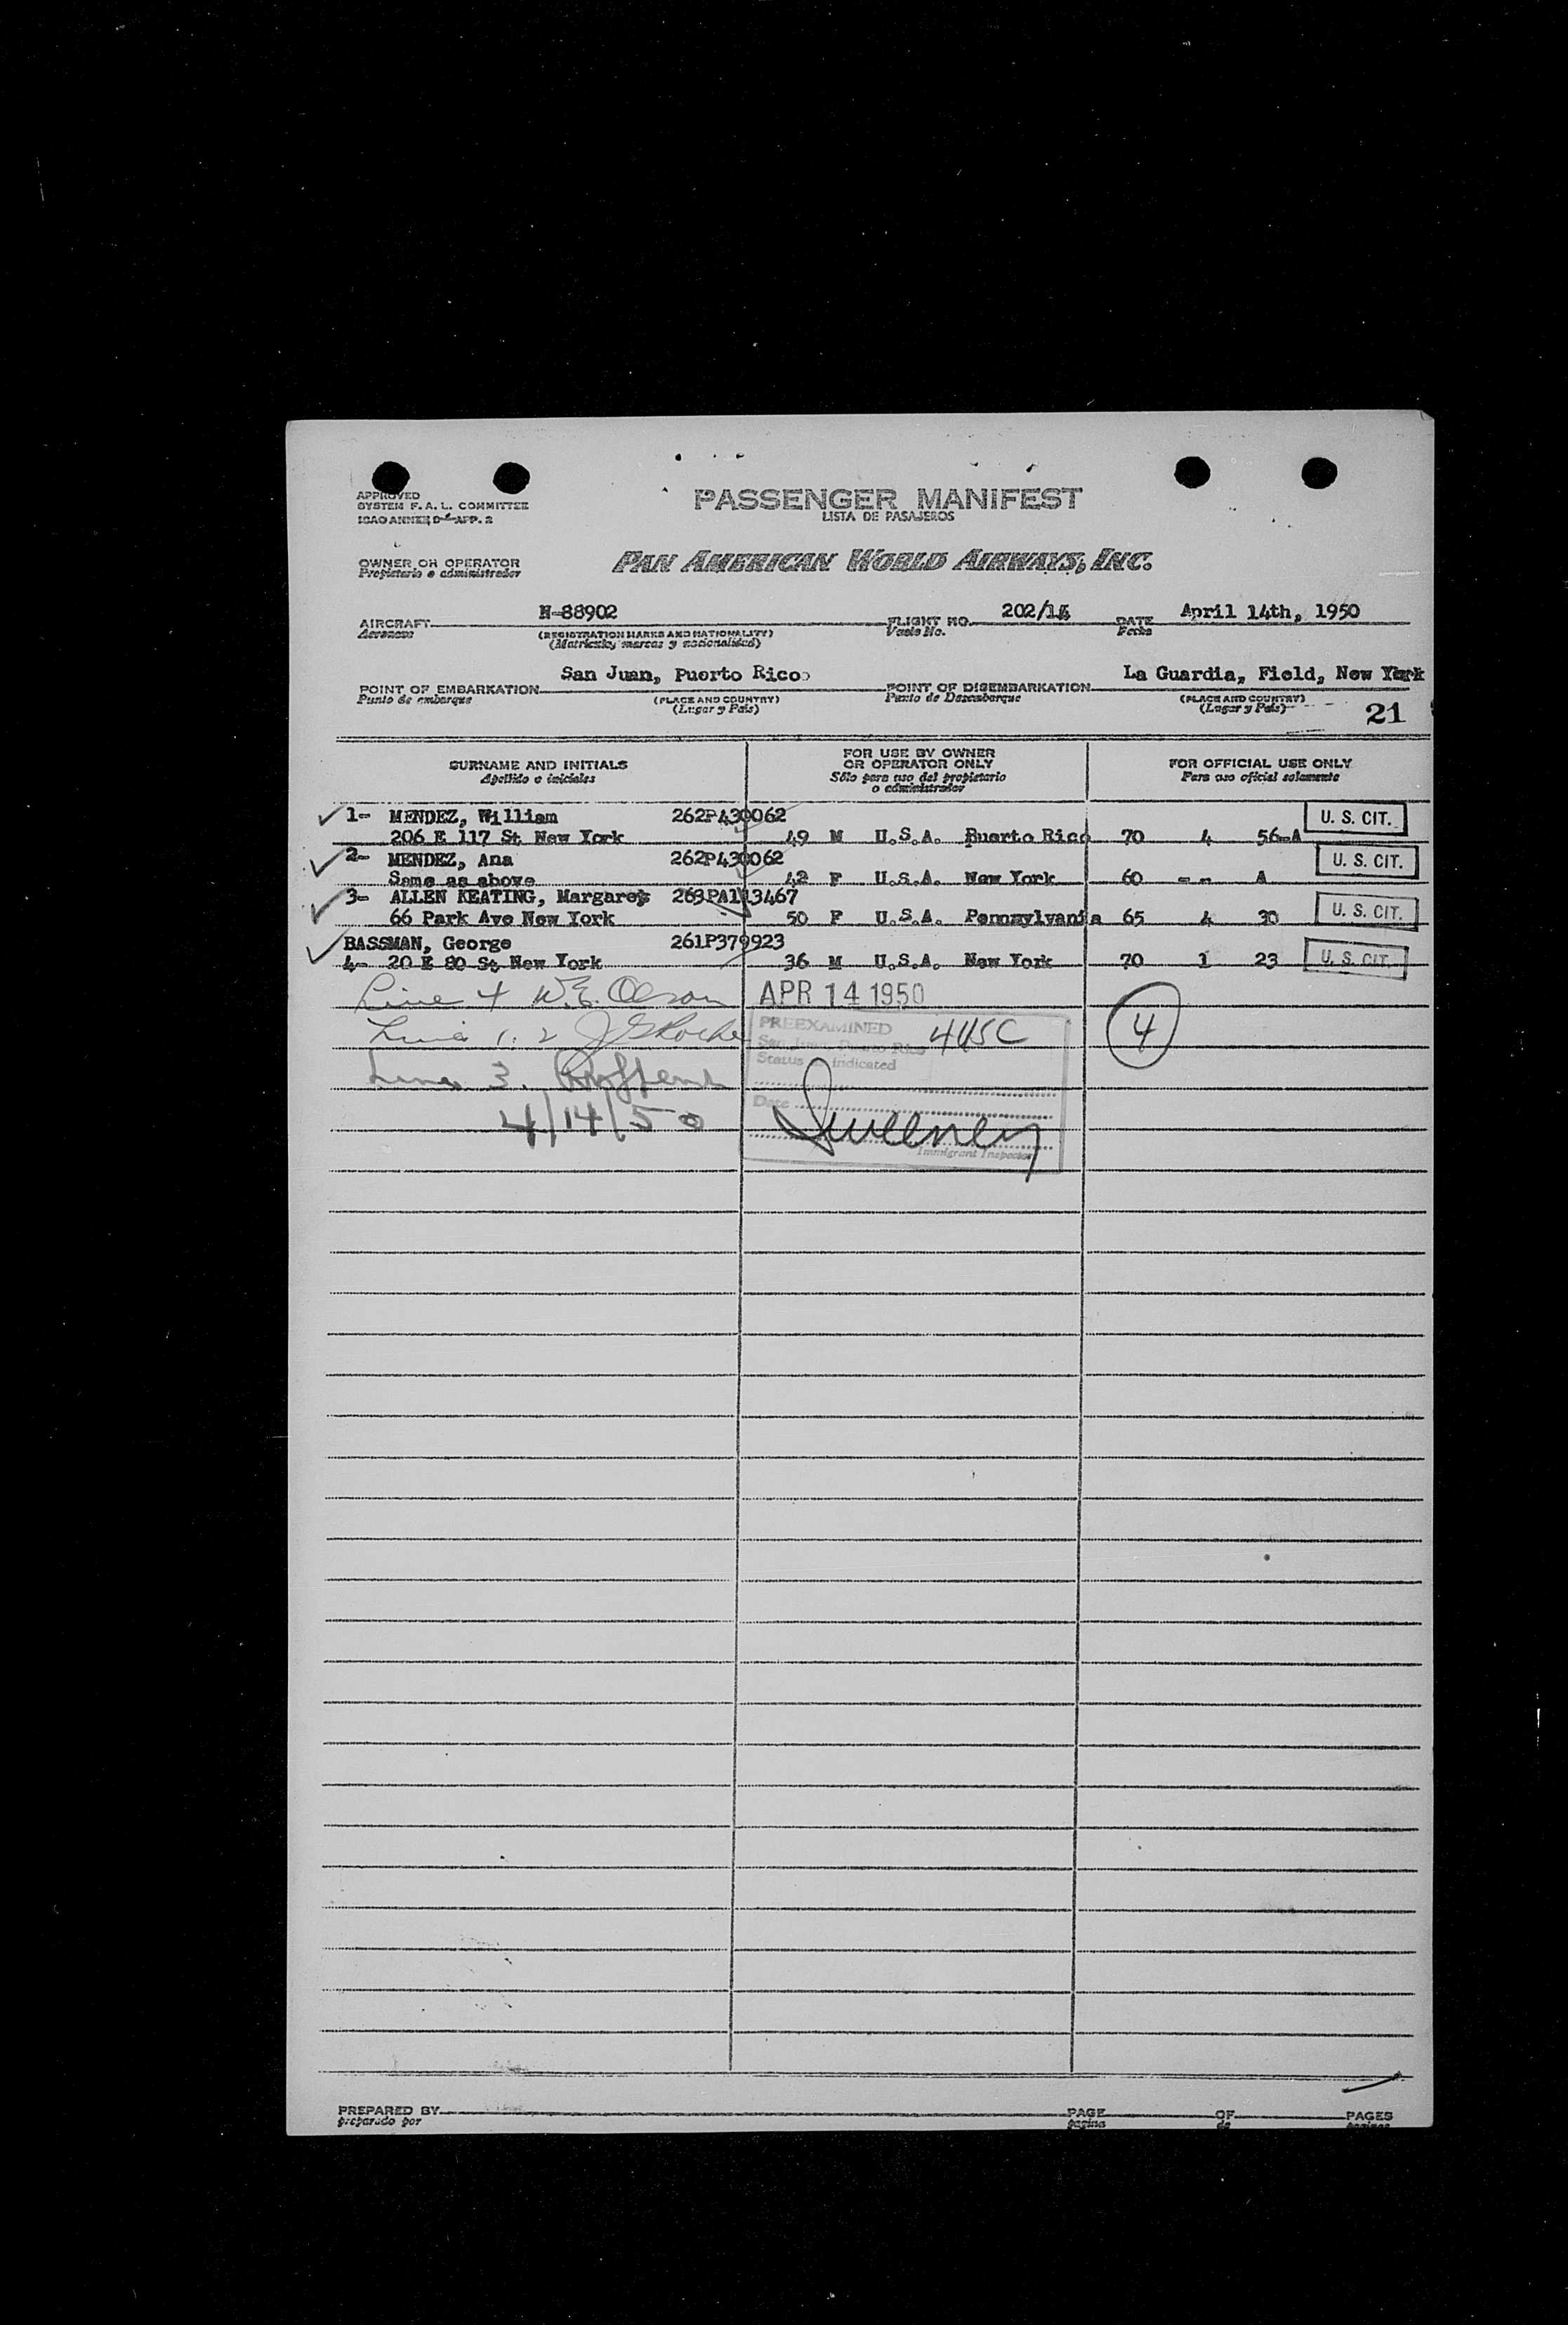 APPROVED
SYSTEM F. A. L. COMMITTEE
ICAO ANNEX 9-APP. 2
PASSENGER MANIFEST
LISTA DE PASAJEROS
OWNER OR OPERATOR
Propietario o administrador
PAN AMERICAN WORLD AIRWAYS, INC.
AIRCRAFT N-88902 FLIGHT NO. 202/14 DATE April 14th, 1950
Aeronave (REGISTRATION MARKS AND NATIONALITY) Vuelo No. Fecha
(Matrícula, marcas y nacionalidad)
POINT OF EMBARKATION San Juan, Puerto Rico POINT OF DISEMBARKATION La Guardia, Field, New York
Punto de embarque (PLACE AND COUNTRY) Punto de Desembarque (PLACE AND COUNTRY)
(Lugar y País) (Lugar y País)
21
SURNAME AND INITIALS FOR USE BY OWNER OR OPERATOR ONLY FOR OFFICIAL USE ONLY
Apellido e iniciales Sólo para uso del propietario o administrador Para uso oficial solamente
1- MENDEZ, William 262P430062 U. S. CIT.
206 E 117 St New York 49 M U.S.A. Puerto Rico 70 4 56-A
2- MENDEZ, Ana 262P430062 U. S. CIT.
Same as above 42 F U.S.A. New York 60 - - A
3- ALLEN KEATING, Margaret 263PA113467 U. S. CIT.
66 Park Ave New York 50 F U.S.A. Pennsylvania 65 4 30
BASSMAN, George 261P379923
4- 20 E 80 St New York 36 M U.S.A. New York 70 1 23 U. S. CIT.
Line 4 W.E. Olson APR 14 1950
Line 1. 2 PREEXAMINED 4USC 4
San Juan, Puerto Rico
Status indicated
Line 3.
Date
4/14/50 Sweeney
Immigrant Inspector
PREPARED BY PAGE OF PAGES
preparado por pagina de paginas